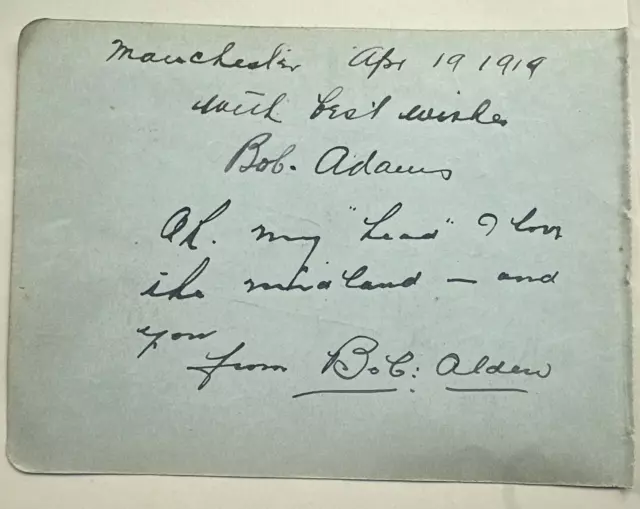 Manchester Apr 19 1919
with best wishes
Bob. Adams
Ah. my "head" I love
the midland — and
you
from Bob: Alden